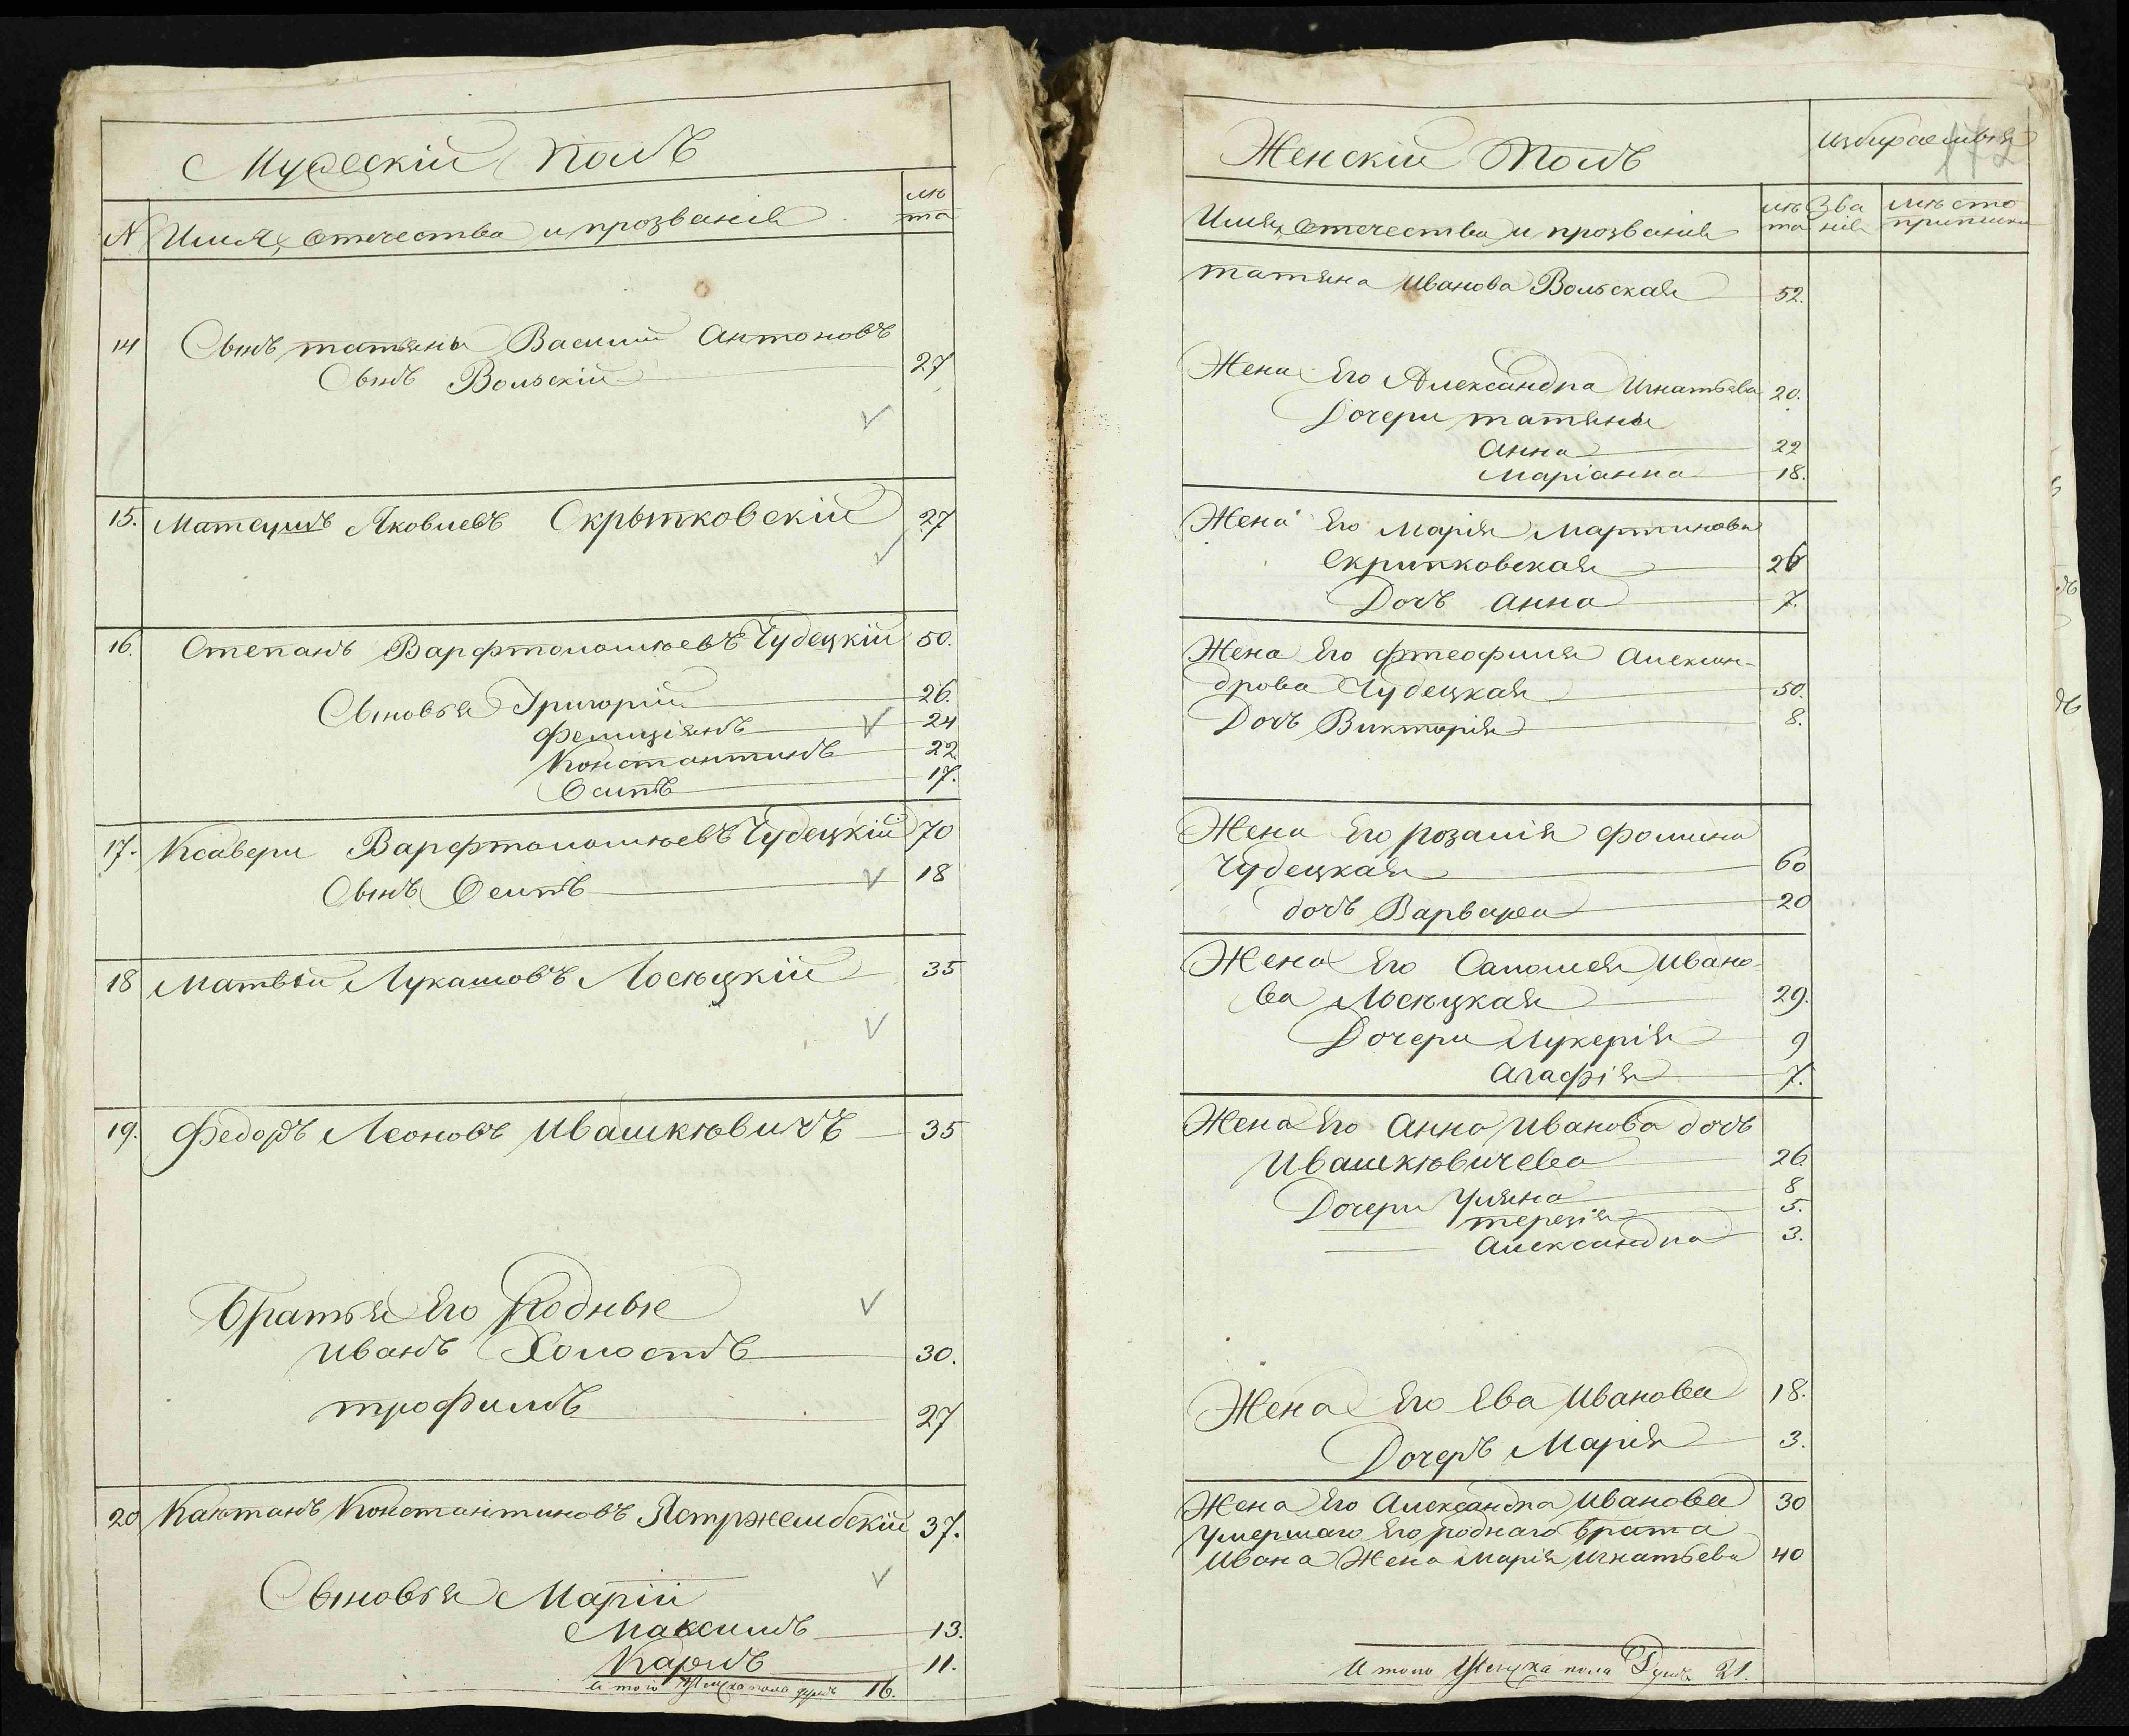 Мужескій Полъ
№ Имя, Отечества и прозванія лѣ
та
14 Сынъ татьяны Василій Антоновъ
Сынъ Вольскій 27
15. Матеушъ Яковлевъ Скрытковскій 27
16. Степанъ Варфтоломѣевъ Чудецкій 50.
Сыновья Григорій 26.
Фелиціянъ 24
Константинъ 22.
Осипъ 17.
17. Ксавери Варфтоломѣевъ Чудецкій 70
Сынъ Осипъ 18
18 Матвѣй Лукашовъ Лосѣцкій 35
19. Федоръ Леоновъ Ивашкѣвичъ 35
Братья Его Родные
Иванъ Холостъ 30.
трофимъ 27
20 Каэтанъ Константиновъ Ястржембскій 37.
Сыновья Маріи
Максимъ 13.
Карлъ 11.
И того Мужеска пола душъ 16.
Женскій Полъ избираемыя
172
Имя, Отечества и прозванія лѣ
та Зва
ніе мѣсто
приписки
татяна Иванова Вольская 52.
Жена Его Александра Игнатьева 20.
Дочери татяны
Анна 22
Маріанна 18.
Жена Его Марія Мартинова
Скрипковская 26
Дочь Анна 7.
Жена Его Фтеофиля Алексан-
дрова Чудецкая 50.
Дочь Викторія 8.
Жена Его розалія Фомина
Чудецкая 60
дочь Варвара 20
Жена Его Саломея Ивано-
ва Лосѣцкая 29.
Дочери Лукерія 9
Агафія 7.
Жена Его Анна Иванова дочь
Ивашкѣвичева 26.
Дочери Уляна 8
терезія 5.
Александра 3.
Жена Его Ева Иванова 18.
Дочерь Марія 3.
Жена Его Александра Иванова 30
Умершаго Его роднаго брата
Ивана Жена Марія Игнатьева 40
И того Женска пола Душъ 21.